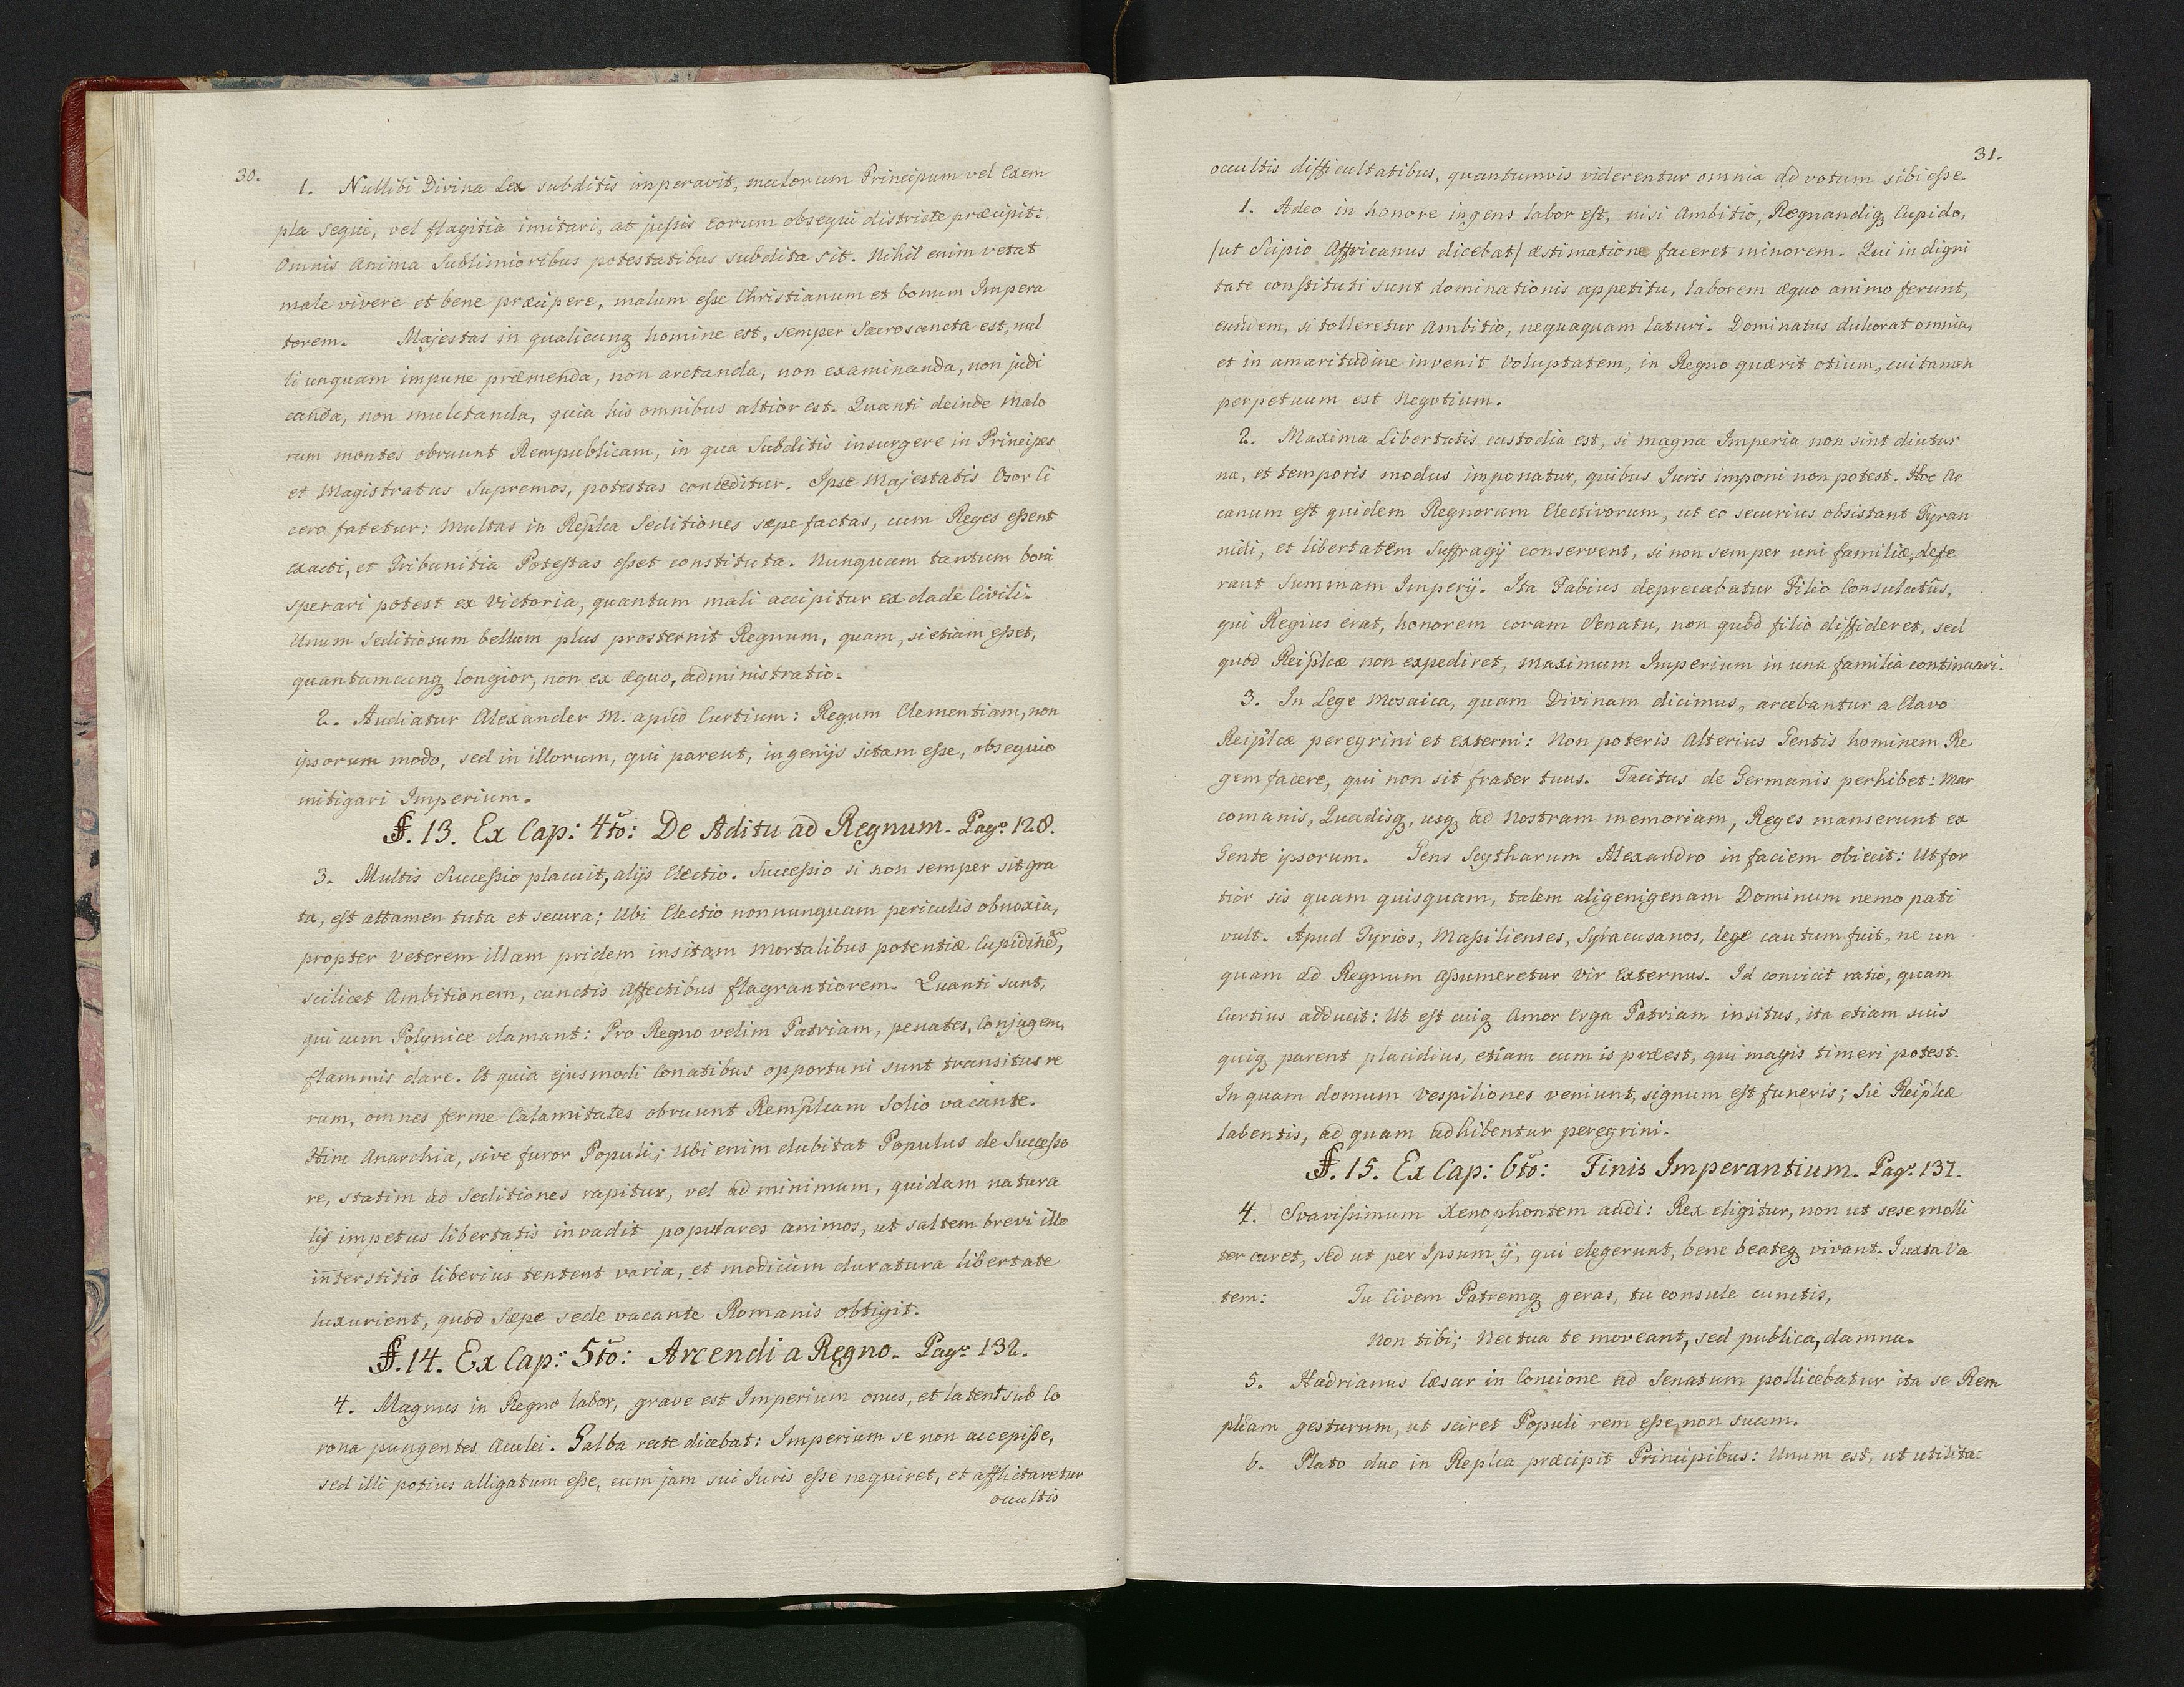 30.
1. Nullibi Divina Lex subditis imperavit, malorum Principum vel Exem
pla sequi, vel flagitia imitari, at jussis eorum obsequi districte præcipit:
Omnis Anima Sublimioribus potestatibus subdita sit. Nihil enim vetat
male vivere et bene præcipere, malum esse Christianum et bonum Impera
torem. Majestas in qualicunq₃ homine est, semper Sacrosancta est, nul
li unquam impune præmenda, non arctanda, non examinanda, non judi
canda, non mulctanda, quia his omnibus altior est. Quanti deinde Malo
rum montes obruunt Rempublicam, in qua Subditis insurgere in Principes
et Magistratus Supremos, potestas conceditur. Ipse Majestatis Osor Ci
cero fatetur: Multas in Replca Seditiones sæpe factas, cum Reges essent
exacti, et Tribunitia Potestas esset constituta. Nunquam tantum boni
sperari potest ex Victoria, quantum mali accipitur ex clade Civili.
Unum Seditiosum bellum plus prosternit Regnum, quam, si etiam esset,
quantumcunq₃ longior, non ex æquo, administratio.
2. Audiatur Alexander M. apud Curtium: Regum Clementiam, non
ipsorum modo, sed in illorum, qui parent, ingenijs sitam esse, obsequio
mitigari Imperium.
§. 13. Ex Cap: 4to: De Aditu ad Regnum. Pag: 128.
3. Multis Successio placuit, alijs Electio. Successio si non semper sit gra
ta, est attamen tuta et secura; Ubi Electio nonnunquam periculis obnoxia,
propter veterem illam pridem insitam Mortalibus potentiæ Cupidinē,
scilicet Ambitionem, cunctis Affectibus flagrantiorem. Quanti sunt,
qui cum Polynice clamant: Pro Regno velim Patriam, penates, Conjugem,
flammis dare. Et quia ejusmodi Conatibus opportuni sunt transitus re
rum, omnes ferme Calamitates obruunt Remplcam Solio vacante.
Hinc Anarchia, sive furor Populi; Ubi enim dubitat Populus de Successo
re, statim ad Seditiones rapitur, vel ad minimum, quidam natura
lis impetus libertatis invadit populares animos, ut saltem brevi illo
interstitio liberius tentent varia, et modicum duratura libertate
luxurient, quod Sæpe sede vacante Romanis obtigit.
§. 14. Ex Cap: 5to: Arcendi a Regno. Pag: 132.
4. Magnus in Regno labor, grave est Imperium onus, et latent sub Co
rona pungentes Aculei. Galba recte dicebat: Imperium se non accepisse,
sed illi potius alligatum esse, cum jam sui Juris esse nequiret, et afflictaretur
occultis
31.
occultis difficultatibus, quantumvis viderentur omnia ad votum sibi esse.
1. Adeo in honore ingens labor est, nisi Ambitio, Regnandiq₃ Cupido,
(ut Scipio Affricanus dicebat) æstimatione faceret minorem. Qui in digni
tate constituti sunt dominationis appetitu, laborem æquo animo ferunt,
eundem, si tolleretur Ambitio, nequaquam laturi. Dominatus dulcorat omnia,
et in amaritudine invenit Voluptatem, in Regno quærit otium, cui tamen
perpetuum est Negotium.
2. Maxima Libertatis custodia est, si magna Imperia non sint diutur
na, et temporis modus imponatur, quibus Juris imponi non potest. Hoc Ar
canum est quidem Regnorum Electivorum, ut eo securius obsistant Tyran
nidi, et libertatem Suffragij conservent, si non semper uni familiæ, defe
rant Summam Imperij. Ita Fabius deprecabatur Filio Consulatûs,
qui Regius erat, honorem coram Senatu, non quòd filio diffideret, sed
quod Reiplcæ non expediret, maximum Imperium in una familia continuari.
3. In Lege Mosaica, quam Divinam dicimus, arcebantur a Clavo
Reiplcæ peregrini et externi: Non poteris Alterius Gentis hominem Re
gem facere, qui non sit frater tuus. Tacitus de Germanis perhibet: Mar
comanis, Quadisq₃, usq₃ ad Nostram memoriam, Reges manserunt ex
Gente ipsorum. Gens Scytharum Alexandro in faciem obiecit: Ut for
tior sis quam quisquam, talem aligenigenam Dominum nemo pati
vult. Apud Tyrios, Massilienses, Syracusanos, lege cautum fuit, ne un
quam ad Regnum assumeretur Vir Externus. Id convicit ratio, quam
Curtius adducit: Ut est cuiq₃ Amor Erga Patriam insitus, ita etiam suis
quiq₃ parent placidius, etiam cum is præest, qui magis timeri potest.
In quam domum Vespiliones veniunt, signum est funeris; Sic Reiplcæ
labentis, ad quam adhibentur peregrini.
§. 15. Ex Cap: 6to: Finis Imperantium. Pag: 137.
4. Svavissimum Xenophontem audi: Rex eligitur, non ut sese molli
ter curet, sed ut per Ipsum ij, qui elegerunt, bene beateq₃ vivant. Juxta Va
tem: Tu Civem Patremq₃ geras, tu consule cunctis,
Non tibi; Nec tua te moveant, sed publica, damna.
5. Hadrianus Cæsar in Concione ad Senatum pollicebatur ita se Rem
plcam gesturum, ut sciret Populi rem esse, non suam.
6. Plato duo in Replca præcipit Principibus: Unum est, ut utilita: